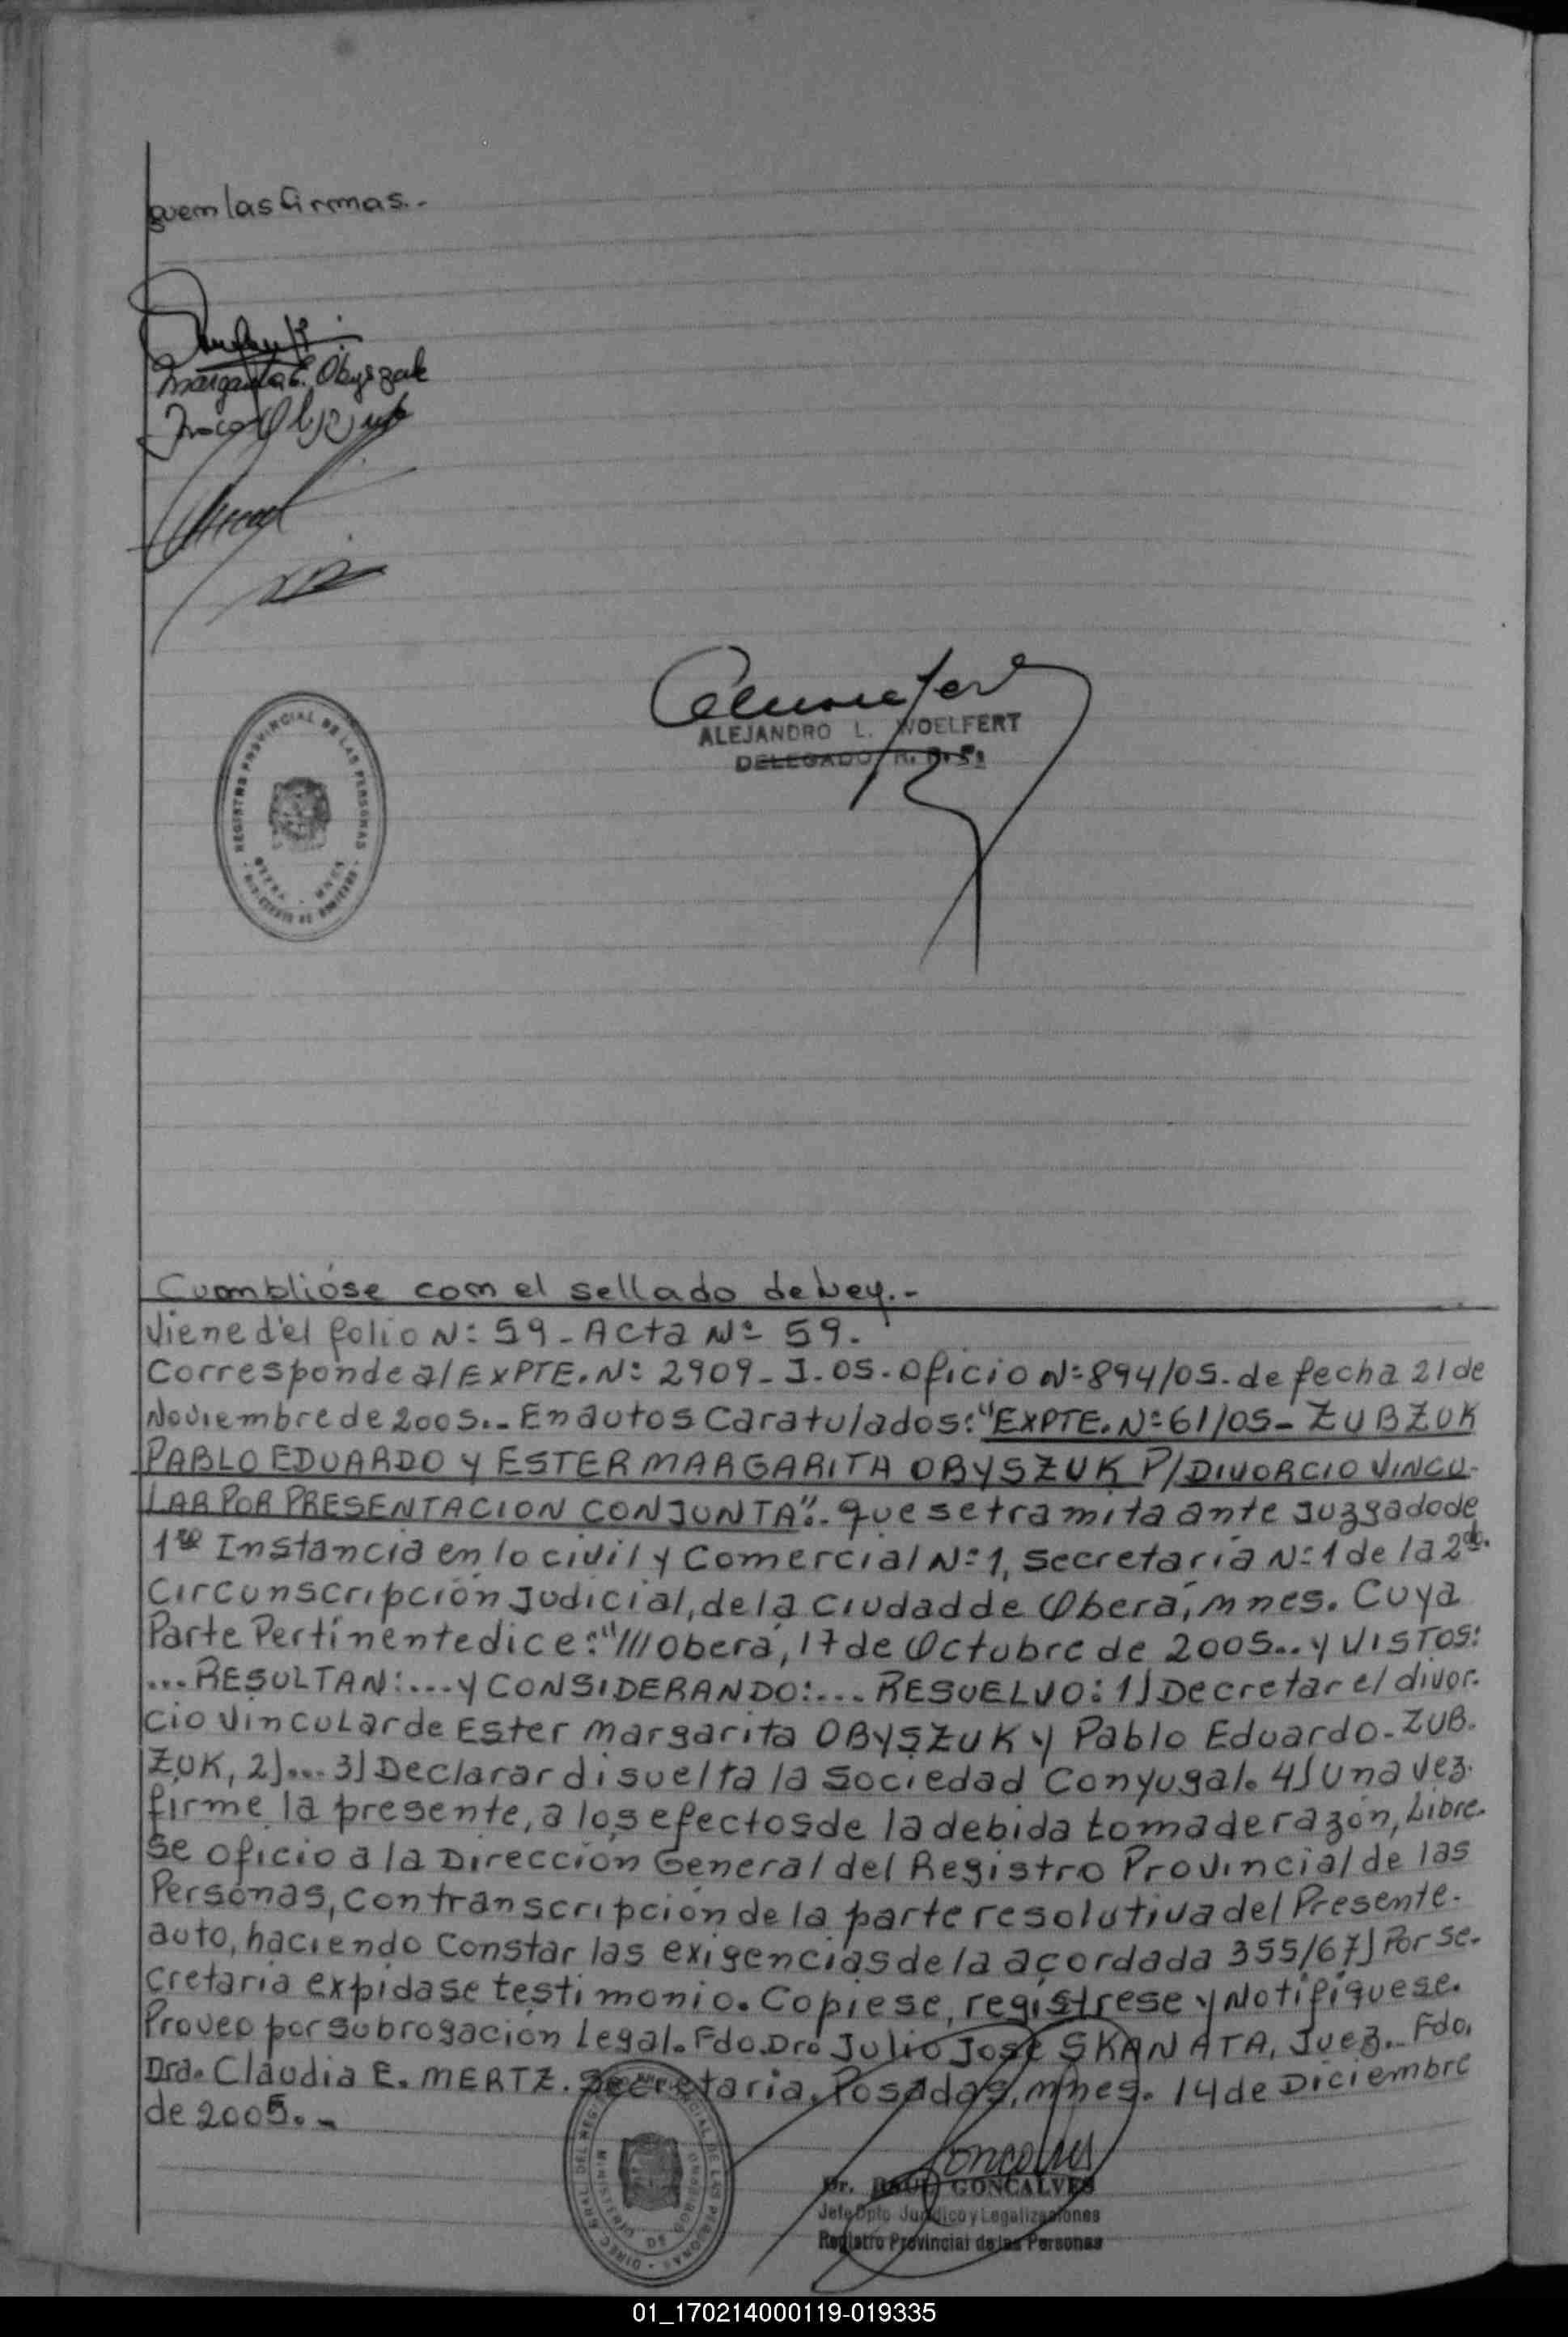 guen las firmas.-
Margarita E. Obyszuk
ALEJANDRO L. WOELFERT
DELEGADO R. P. P.
REGISTRO PROVINCIAL DE LAS PERSONAS
OBERA - MNES
MINISTERIO DE GOBIERNO
Cumblióse con el sellado de Ley.-
Viene d'el folio N: 59 - Acta Nº 59.
Corresponde al EXPTE. N: 2909 - J - 05 - Oficio Nº 894/05 - de fecha 21 de
Noviembre de 2005.- En autos Caratulados: "EXPTE. Nº 61/05 - ZUBZUK
PABLO EDUARDO Y ESTER MARGARITA OBYSZUK P/DIVORCIO VINCU-
LAR POR PRESENTACION CONJUNTA".- que se tramita ante Juzgado de
1ra Instancia en lo civil y Comercial Nº 1, secretaría Nº 1 de la 2da.
Circunscripción Judicial, de la ciudad de Oberá, Mnes. Cuya
Parte Pertinente dice: "/// Oberá, 17 de Octubre de 2005.. y VISTOS:
... RESULTAN: ... Y CONSIDERANDO: ... RESUELVO: 1) Decretar el divor-
cio vincular de Ester Margarita OBYSZUK y Pablo Eduardo - ZUB-
ZUK, 2) ... 3) Declarar disuelta la Sociedad Conyugal. 4) Una vez
firme la presente, a los efectos de la debida toma de razón, Libre-
se oficio a la Dirección General del Registro Provincial de las
Personas, con transcripción de la parte resolutiva del Presente-
auto, haciendo Constar las exigencias de la acordada 355/67) Por se-
cretaría expídase testimonio. Copiese, regístrese y Notifíquese.
Proveo por subrogación Legal. Fdo. Dro Julio José SKANATA, Juez.- Fdo.
Dra. Claudia E. MERTZ. Secretaria. Posadas, Mnes. 14 de Diciembre
de 2005.-
DIREC. GRAL. DEL REGISTRO PROVINCIAL DE LAS PERSONAS
MINISTERIO DE GOBIERNO
Dr. RAUL GONCALVES
Jefe Dpto Jurídico y Legalizaciones
Registro Provincial de las Personas
01_170214000119-019335